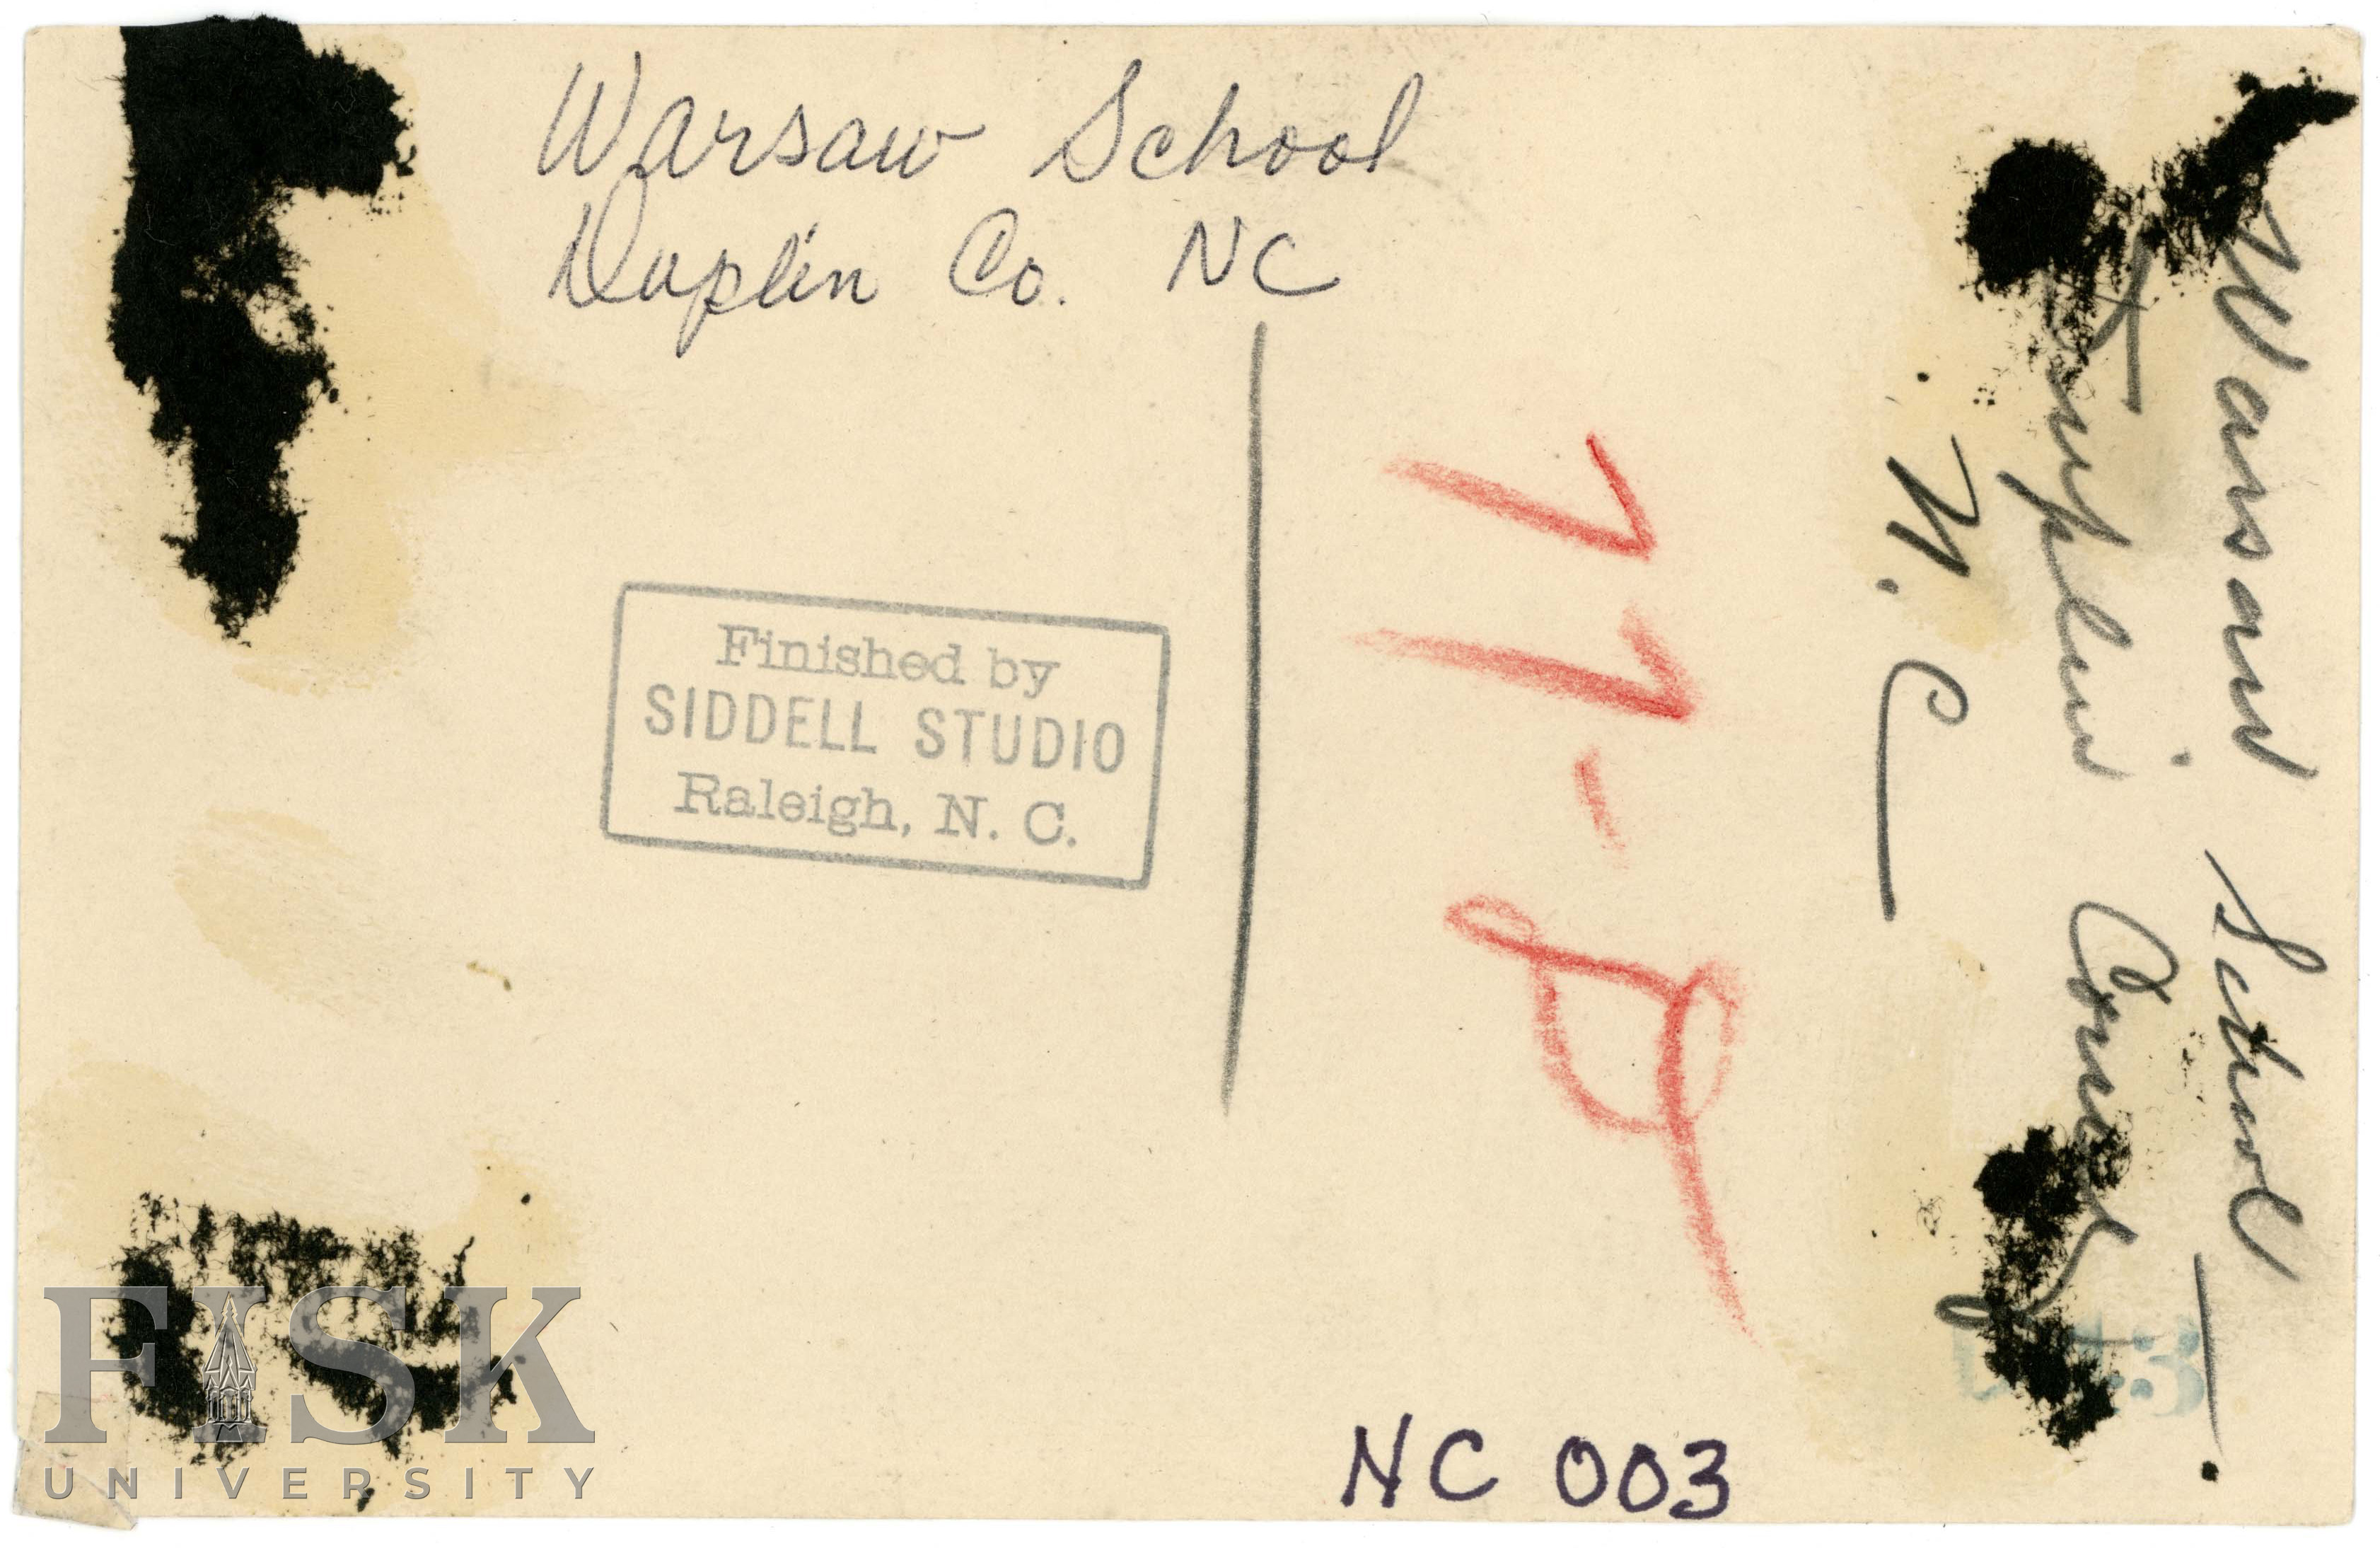 Warsaw School
Duplin Co. NC
Finished by
SIDDELL STUDIO
Raleigh, N. C.
Warsaw School
Duplin County
N. C
NC 003
FISK
UNIVERSITY